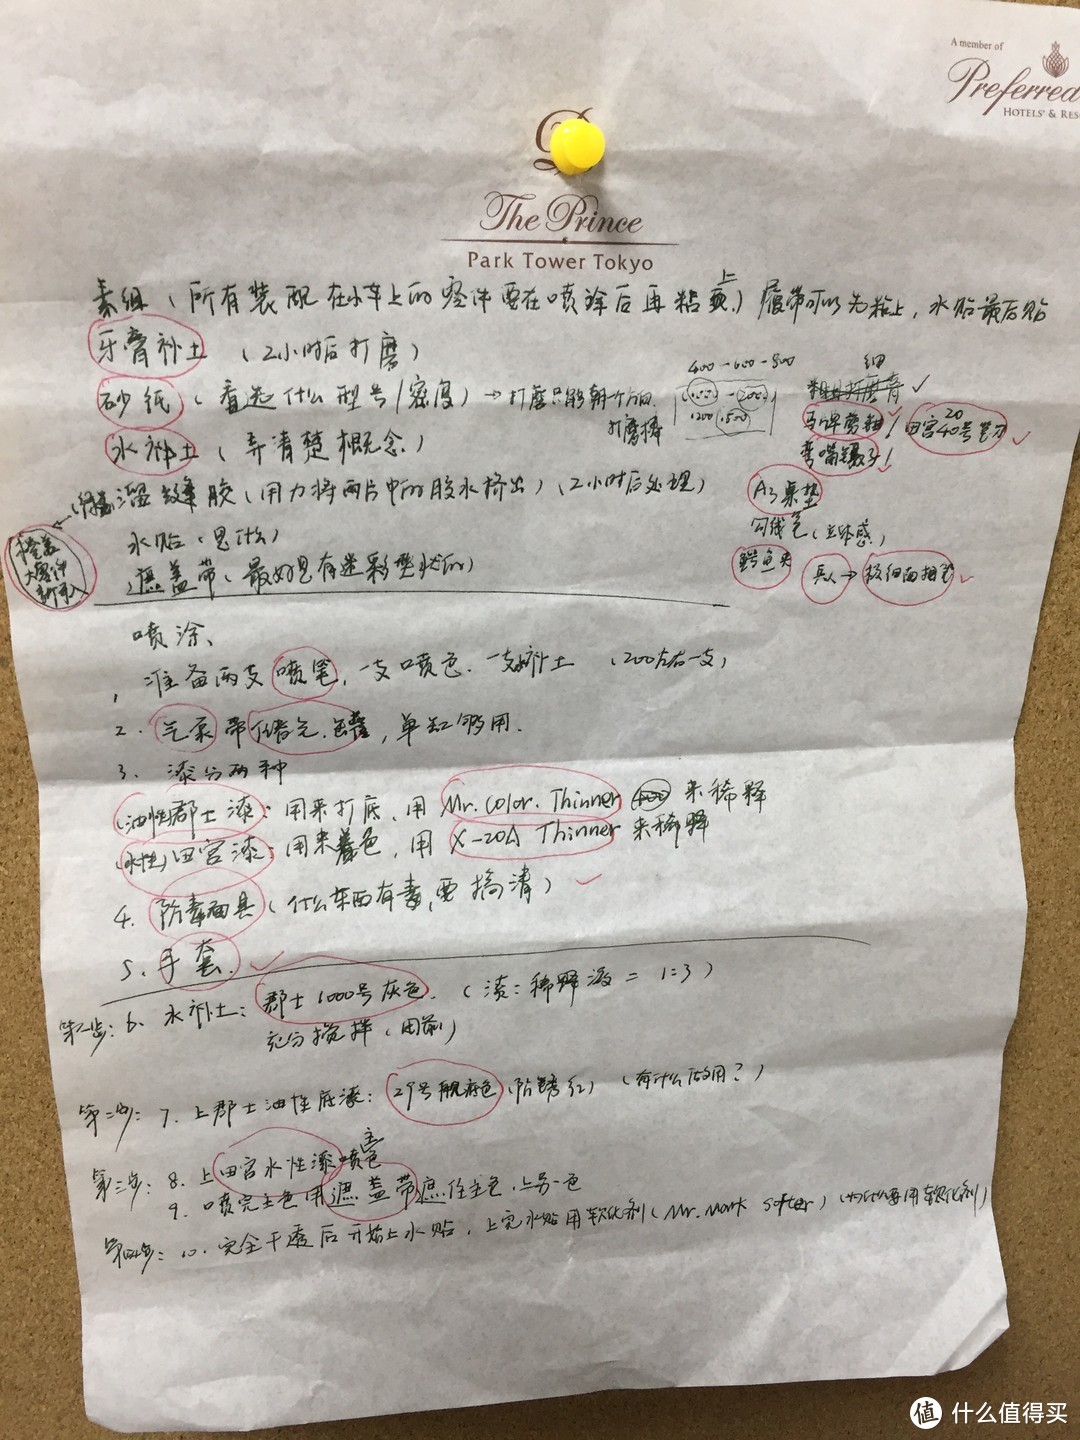 A member of
Preferred
HOTELS & RES
The Prince
Park Tower Tokyo
素组（所有装配在小车上的零件要在喷涂后再粘上）履带可以先粘上，水贴最后贴
牙膏补土（2小时后打磨）
砂纸（看选什么型号/密度）→打磨只能朝一个方向
打磨棒
400-600-800
1000-200
1200 1500
细
马牌剪钳！
田宫20 40号笔刀
弯嘴镊子！
水补土（弄清楚概念）
溜缝胶（用力将两片中的胶水挤出）（2小时后处理）
A3桌垫
勾线笔（立体感）
水贴（是什么）
鳄鱼夹
兵人→极细面相笔
遮盖带（最好是有迷彩型状的）
喷涂、
准备两支喷笔，一支喷色.一支补土（200左右一支）
2.气泵带储气.罐，单缸够用.
3.漆分两种
（油性）郡士漆：用来打底，用Mr.Color.Thinner来稀释
（水性）田宫漆：用来着色，用X-20A Thinner来稀释
4.防毒面具（什么东西有毒，要搞清）
5.手套.
第一步：6.水补土：郡士1000号灰色.（漆：稀释液=1:3）
充分搅拌（用前）
第二步：7.上郡士油性底漆：29号舰底色（防锈红）（有什么作用？）
第三步：8.上田宫水性漆喷主色
9.喷完主色用遮盖带遮住主色，上另一色
第四步：10.完全干透后开始上水贴，上完水贴用软化剂（Mr.Mark softer）（为什么要用软化剂）
值 什么值得买